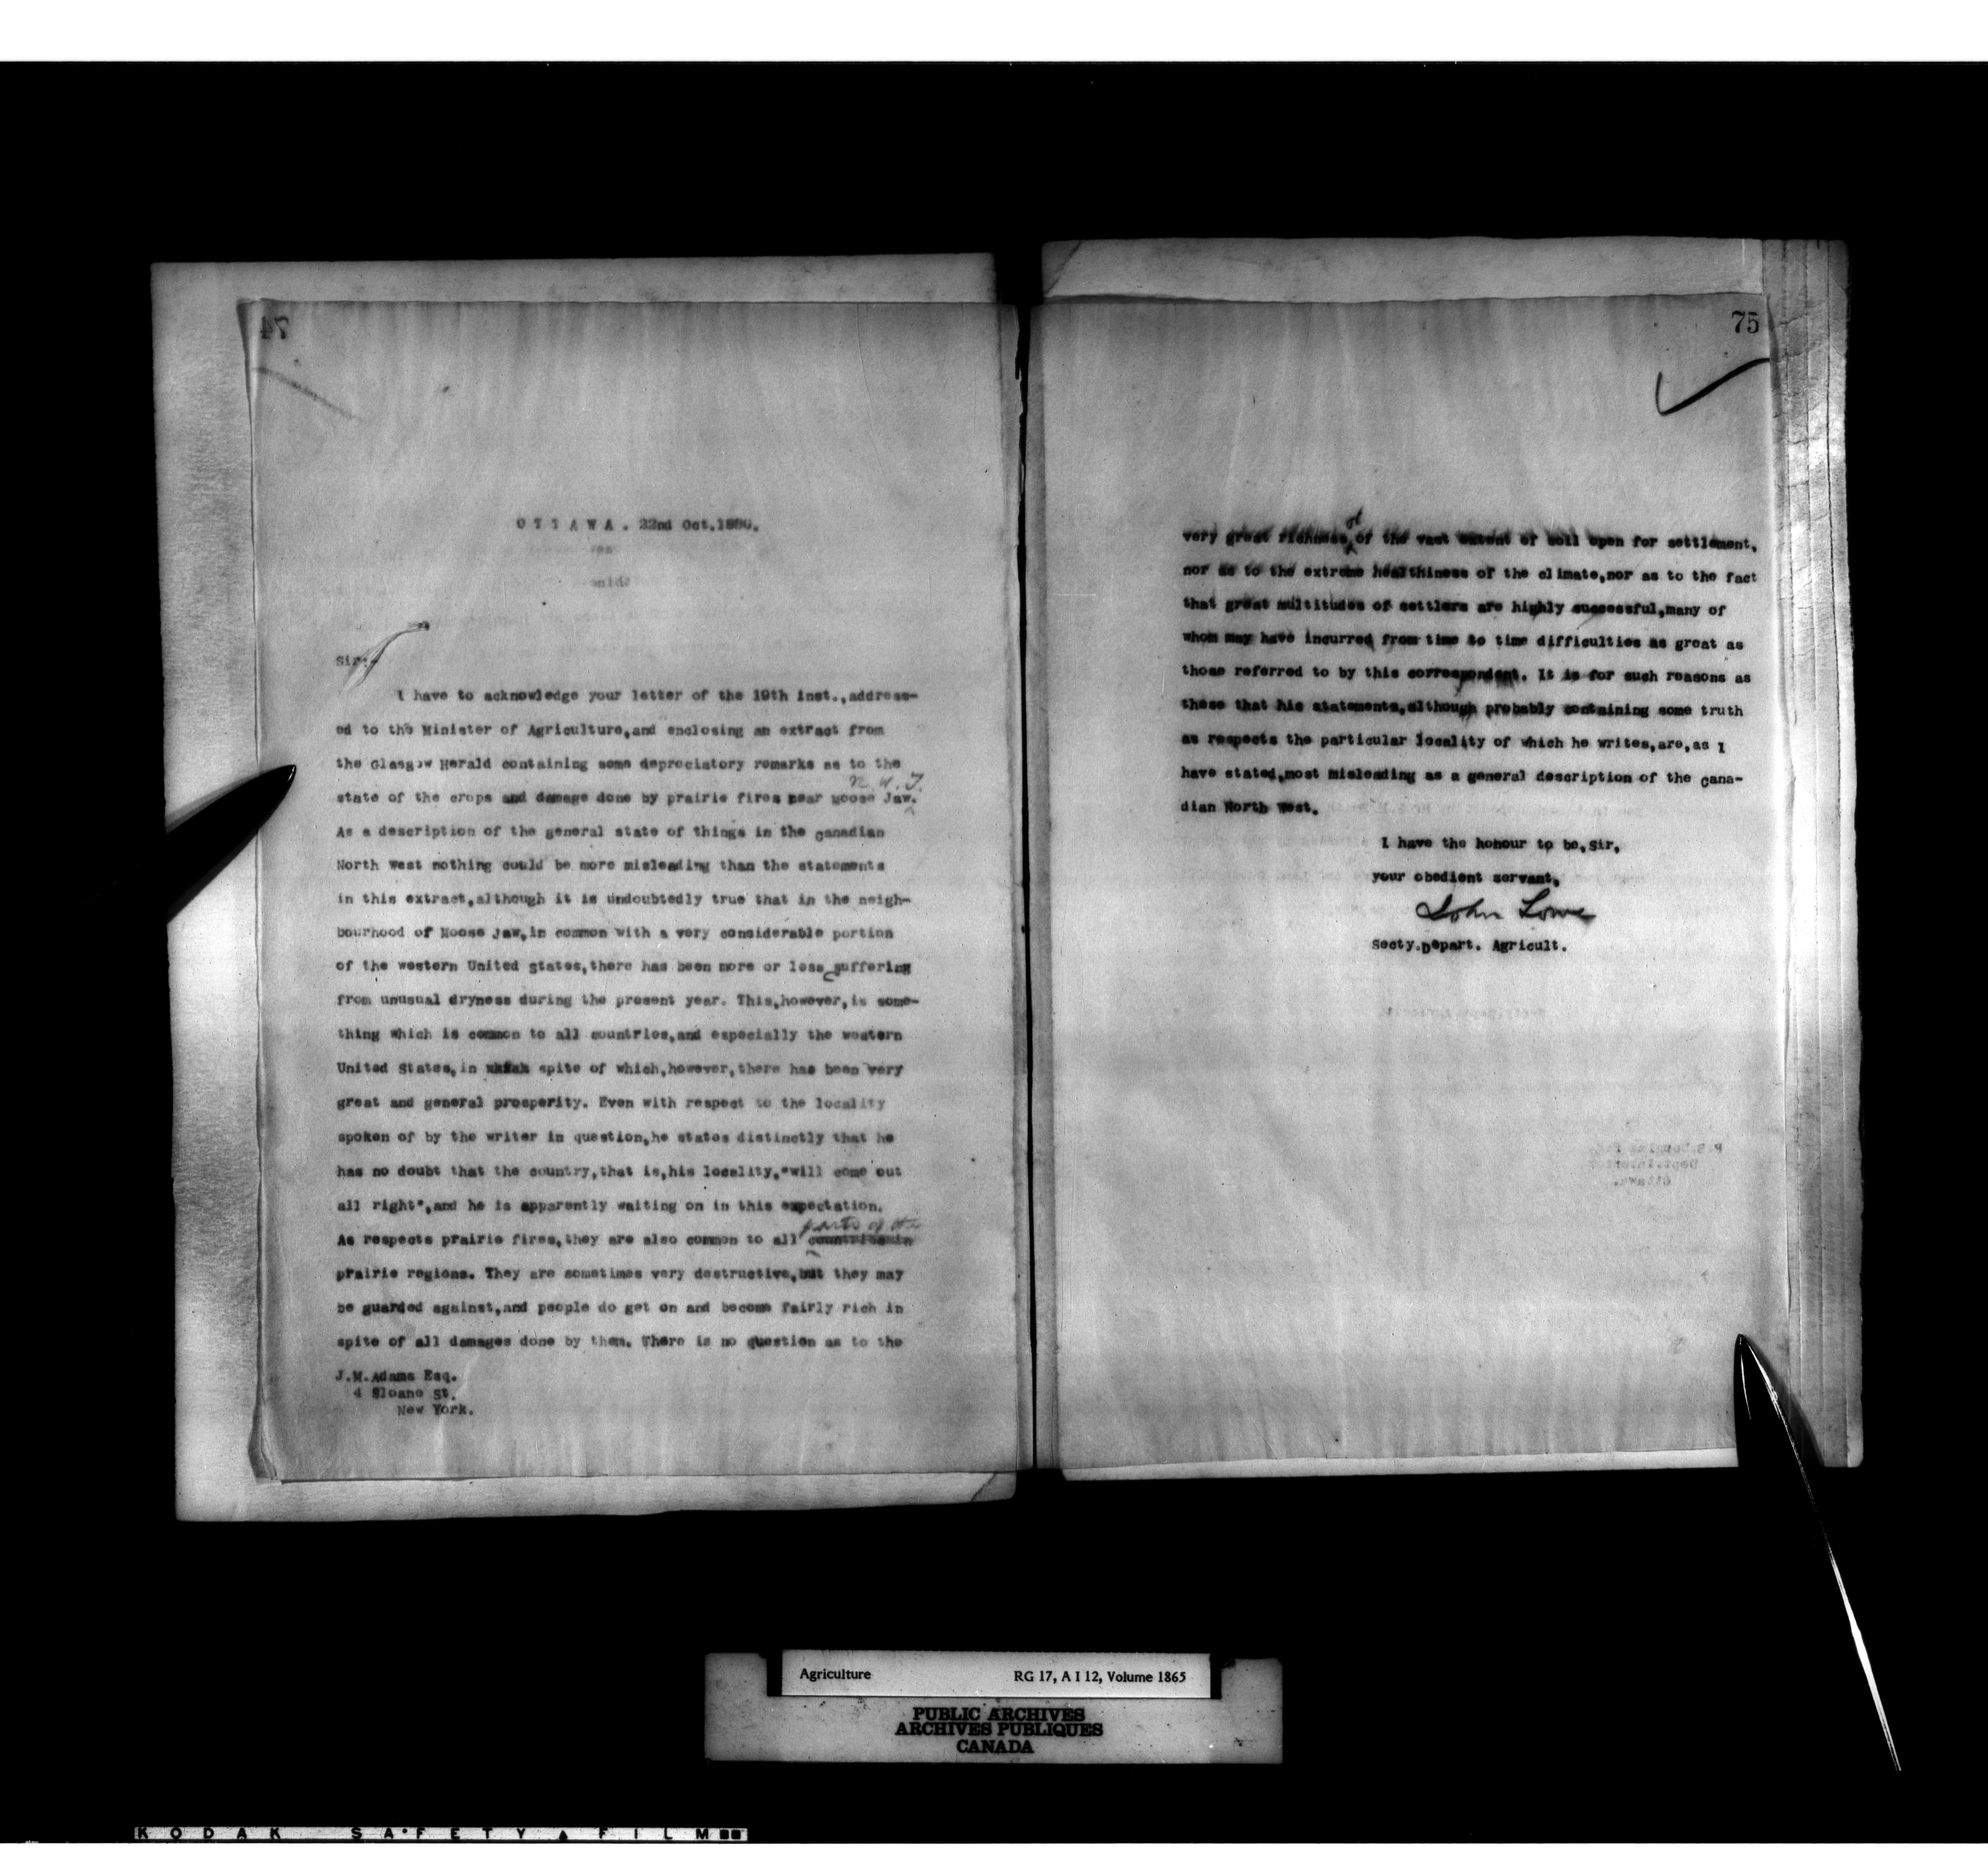 74
O T T A W A . 22nd Oct. 1886.
Sir:-
I have to acknowledge your letter of the 19th inst., address-
ed to the Minister of Agriculture, and enclosing an extract from
the Glasgow Herald containing some depreciatory remarks as to the
N. W. T.
state of the crops and damage done by prairie fires near Moose Jaw.
As a description of the general state of things in the Canadian
North West nothing could be more misleading than the statements
in this extract, although it is undoubtedly true that in the neigh-
bourhood of Moose Jaw, in common with a very considerable portion
of the western United States, there has been more or less suffering
from unusual dryness during the present year. This, however, is some-
thing which is common to all countries, and especially the western
United States, in spite of which, however, there has been very
great and general prosperity. Even with respect to the locality
spoken of by the writer in question, he states distinctly that he
has no doubt that the country, that is, his locality, "will come out
all right", and he is apparently waiting on in this expectation.
parts of the
As respects prairie fires, they are also common to all countries in
prairie regions. They are sometimes very destructive, but they may
be guarded against, and people do get on and become fairly rich in
spite of all damages done by them. There is no question as to the
J.M. Adams Esq.
4 Sloane St.
New York.
75
of
very great richness of the vast extent of soil open for settlement,
nor as to the extreme healthiness of the climate, nor as to the fact
that great multitudes of settlers are highly successful, many of
whom may have incurred from time to time difficulties as great as
those referred to by this correspondent. It is for such reasons as
these that his statements, although probably containing some truth
as respects the particular locality of which he writes, are, as I
have stated, most misleading as a general description of the Cana-
dian North West.
I have the honour to be, Sir,
your obedient servant,
John Lowe
Secty. Depart. Agricult.
Agriculture RG 17, A I 12, Volume 1865
PUBLIC ARCHIVES
ARCHIVES PUBLIQUES
CANADA
KODAK SAFETY FILM